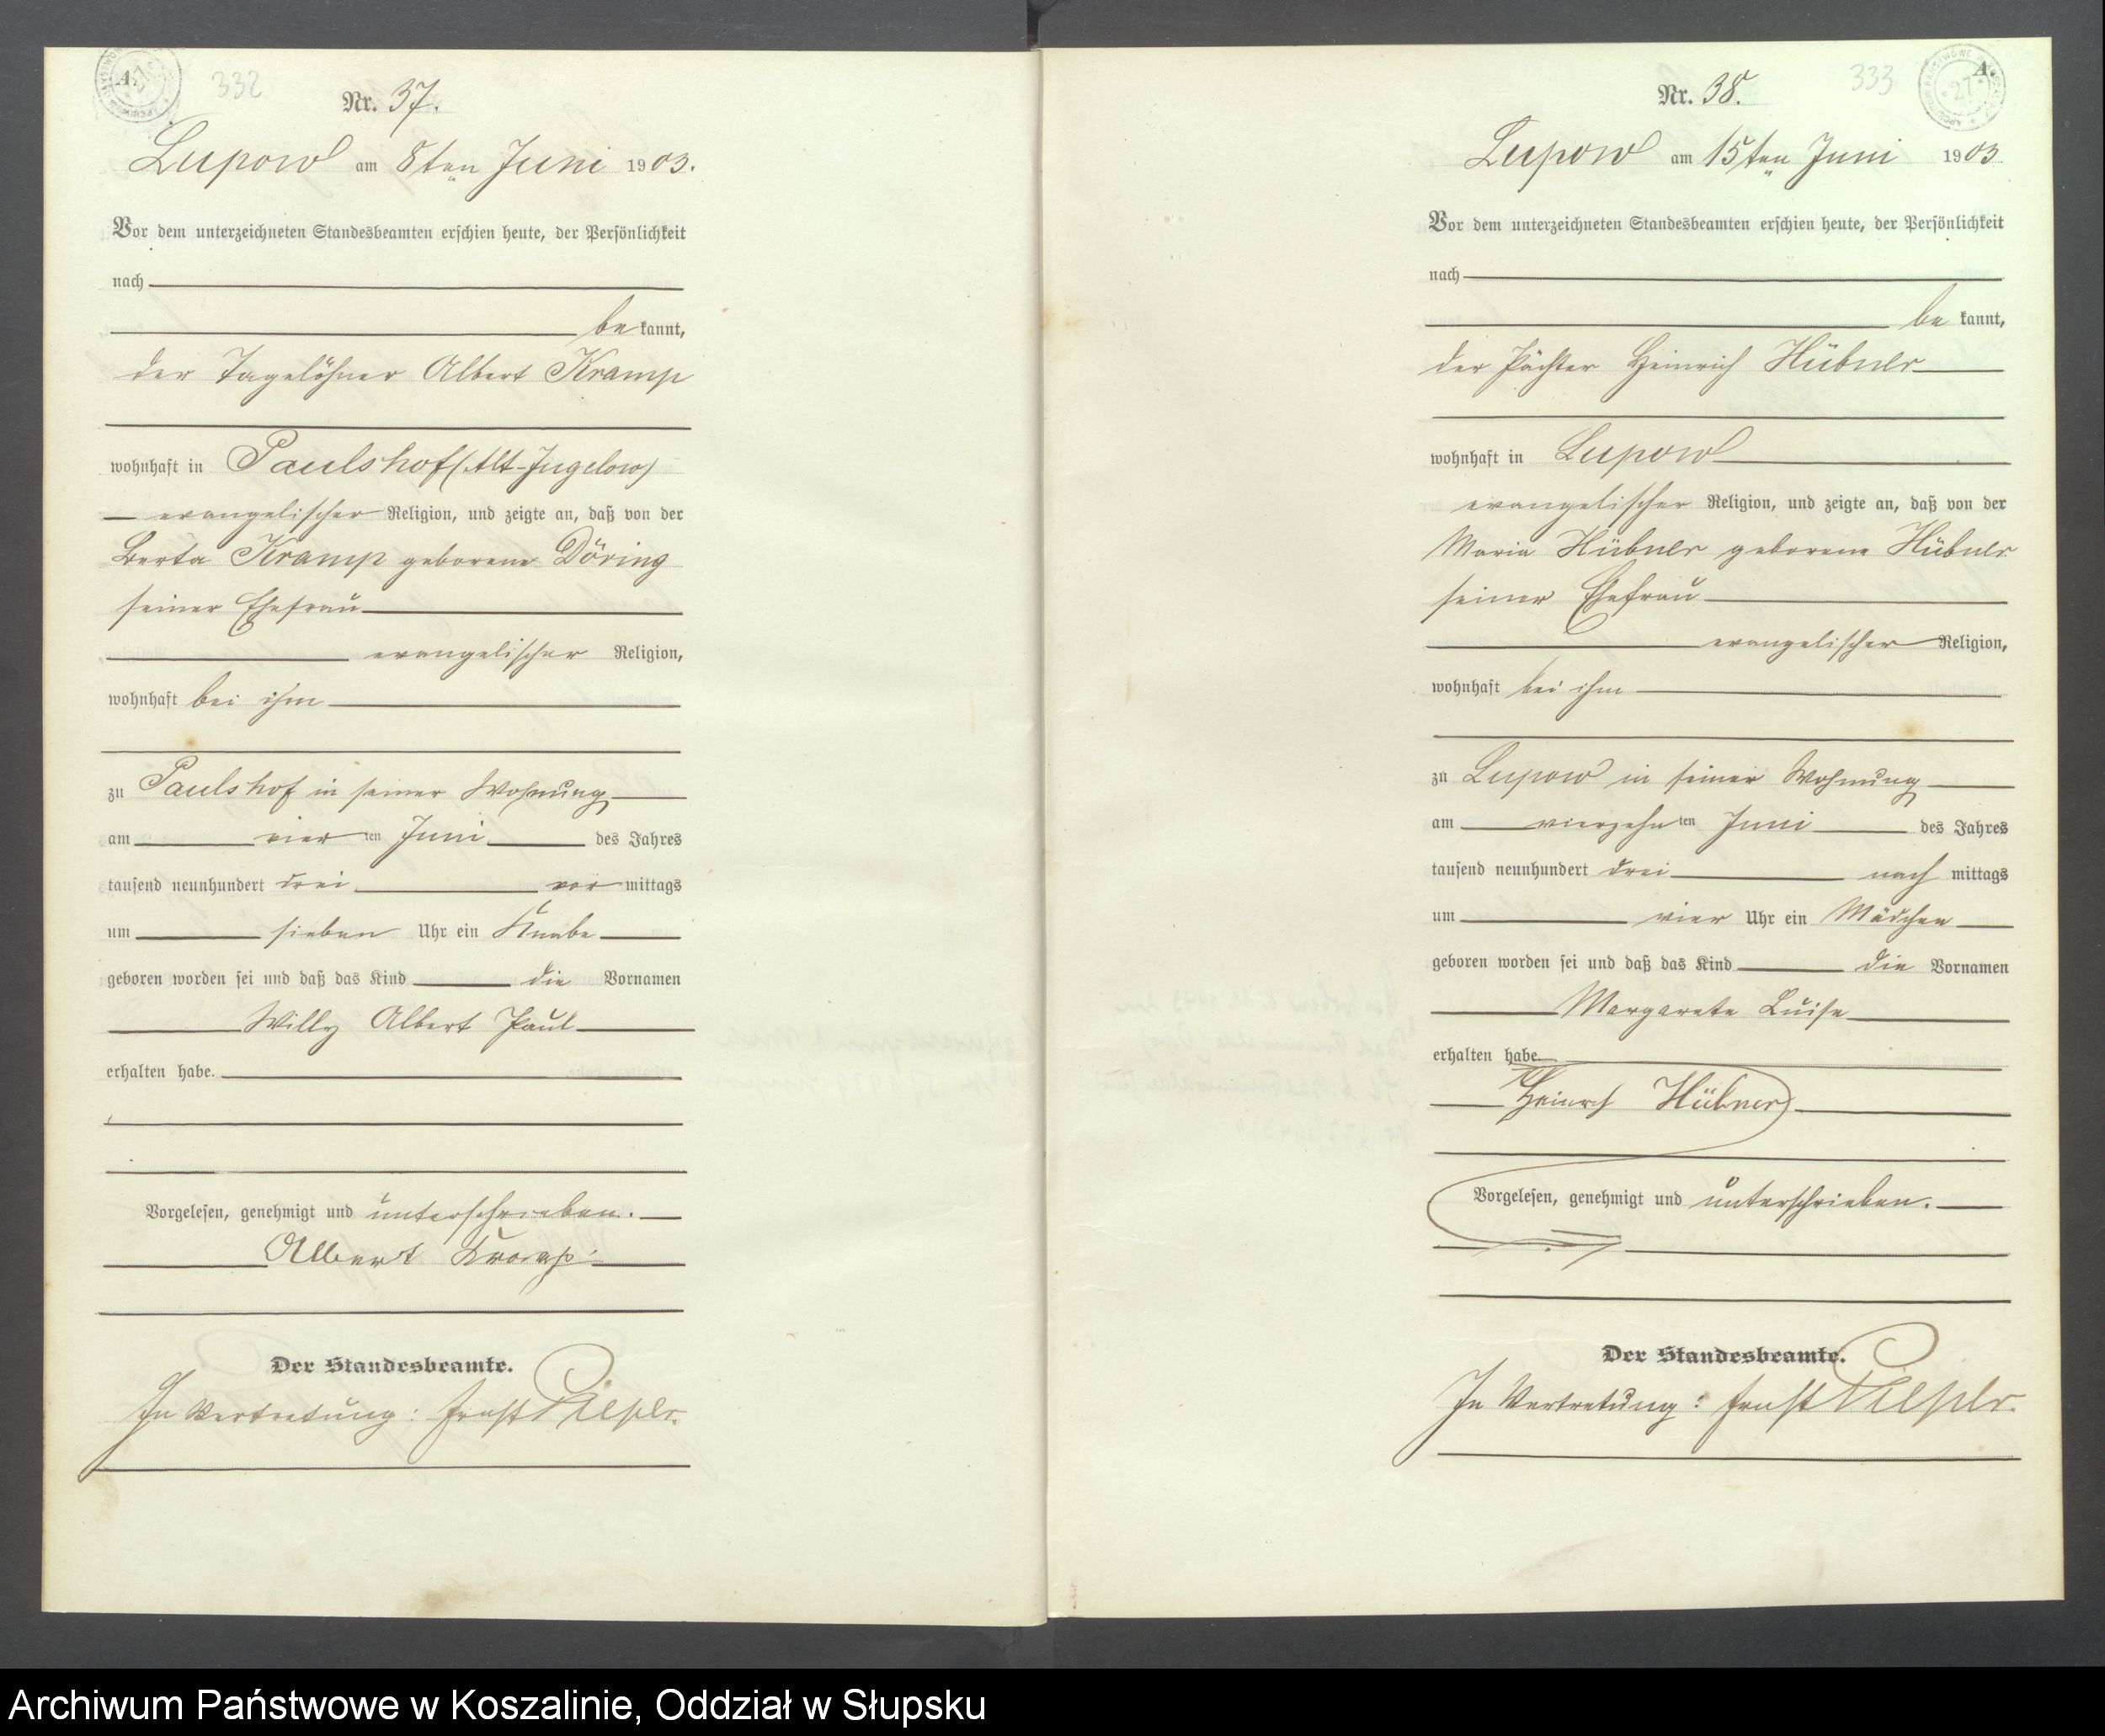 A.
332
Nr. 37.
Lupow am 8ten Juni 1903.
Vor dem unterzeichneten Standesbeamten erschien heute, der Persönlichkeit
nach
be kannt,
der Tagelöhner Albert Kramp
wohnhaft in Paulshof (Alt-Jugelow)
evangelischer Religion, und zeigte an, daß von der
Berta Kramp geborene Döring
seiner Ehefrau
evangelischer Religion,
wohnhaft bei ihm
zu Paulshof in seiner Wohnung
am vier ten Juni des Jahres
tausend neunhundert drei vor mittags
um sieben Uhr ein Knabe
geboren worden sei und daß das Kind die Vornamen
Willy Albert Paul
erhalten habe.
Vorgelesen, genehmigt und unterschrieben.
Albert Kramp
Der Standesbeamte.
In Vertretung: Ernst
A.
27
333
Nr. 38.
Lupow am 15ten Juni 1903
Vor dem unterzeichneten Standesbeamten erschien heute, der Persönlichkeit
nach
be kannt,
der Pächter Heinrich Hübner
wohnhaft in Lupow
evangelischer Religion, und zeigte an, daß von der
Maria Hübner geborene Hübner
seiner Ehefrau
evangelischer Religion,
wohnhaft bei ihm
zu Lupow in seiner Wohnung
am vierzehn ten Juni des Jahres
tausend neunhundert drei nach mittags
um vier Uhr ein Mädchen
geboren worden sei und daß das Kind die Vornamen
Margarete Luise
erhalten habe
Heinrich Hübner
Vorgelesen, genehmigt und unterschrieben.
Der Standesbeamte.
In Vertretung: Ernst
Archiwum Państwowe w Koszalinie, Oddział w Słupsku